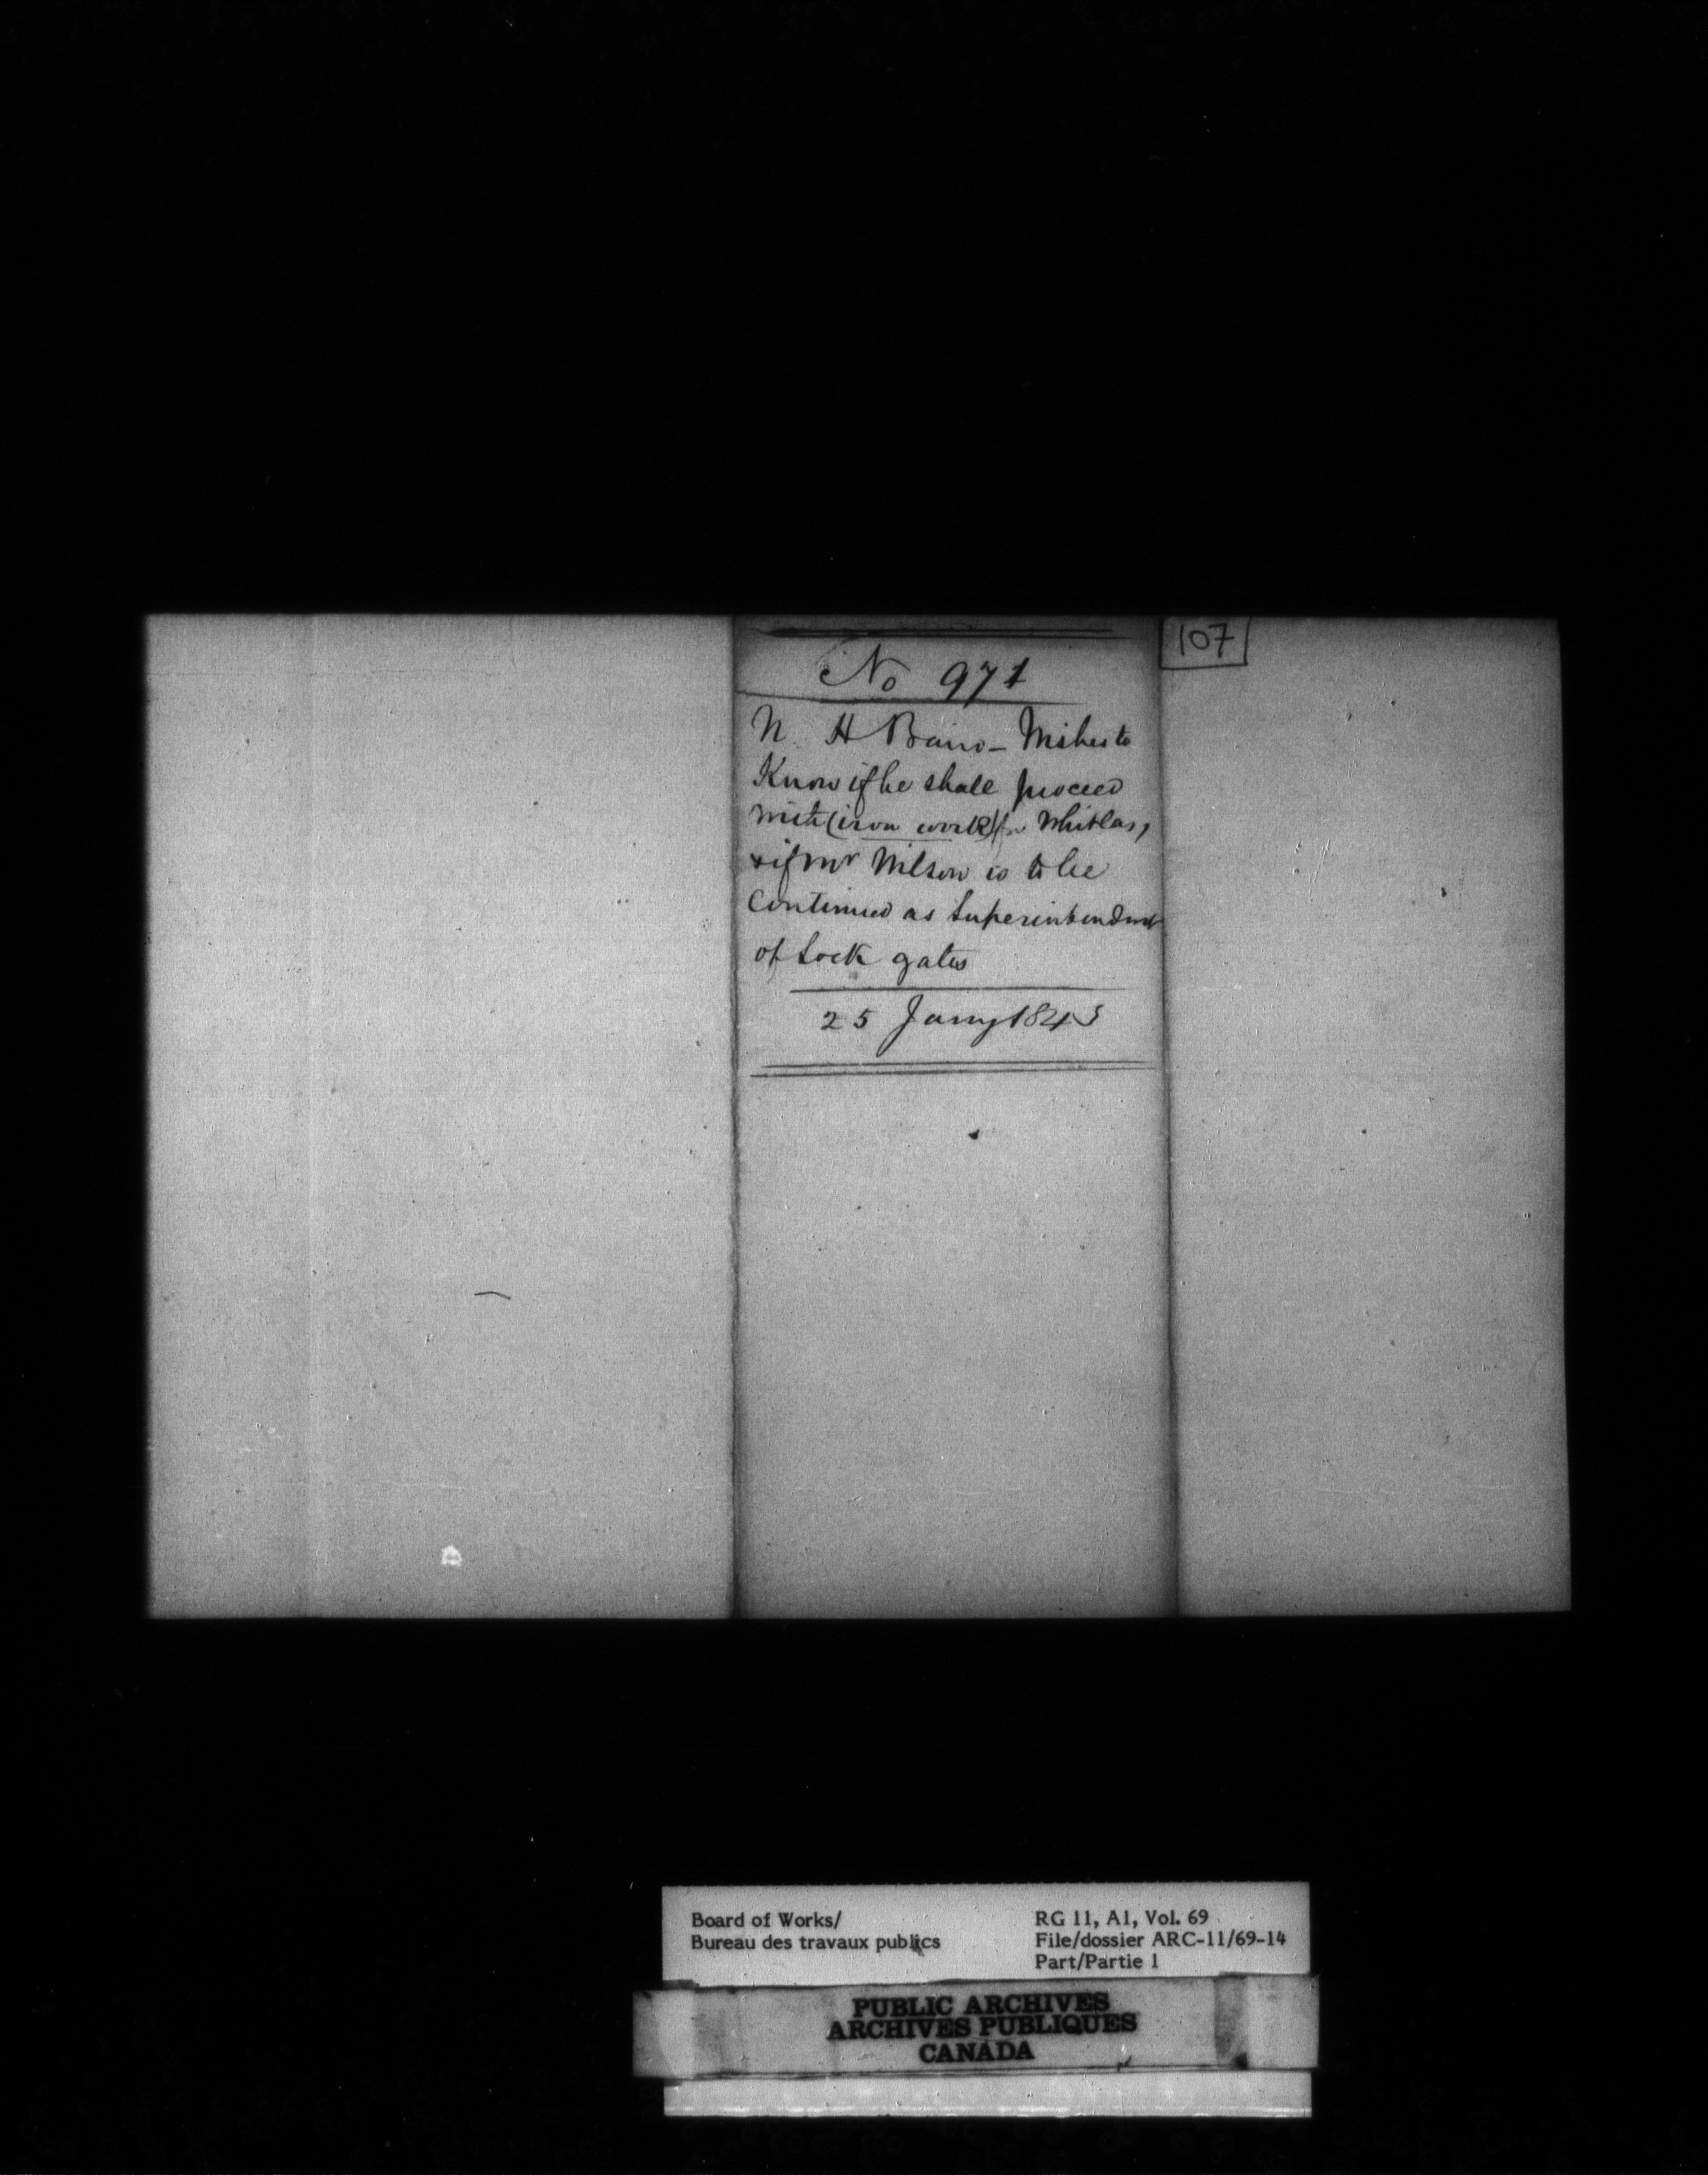 107
No 971
N H Baird - Wishes to
Know if he shall proceed
with (iron work) for Whitlas,
& if Mr Wilson is to be
Continued as Superintendent
of Lock gates
25 Jany 1843
Board of Works/
Bureau des travaux publics
RG 11, A1, Vol. 69
File/dossier ARC-11/69-14
Part/Partie 1
PUBLIC ARCHIVES
ARCHIVES PUBLIQUES
CANADA